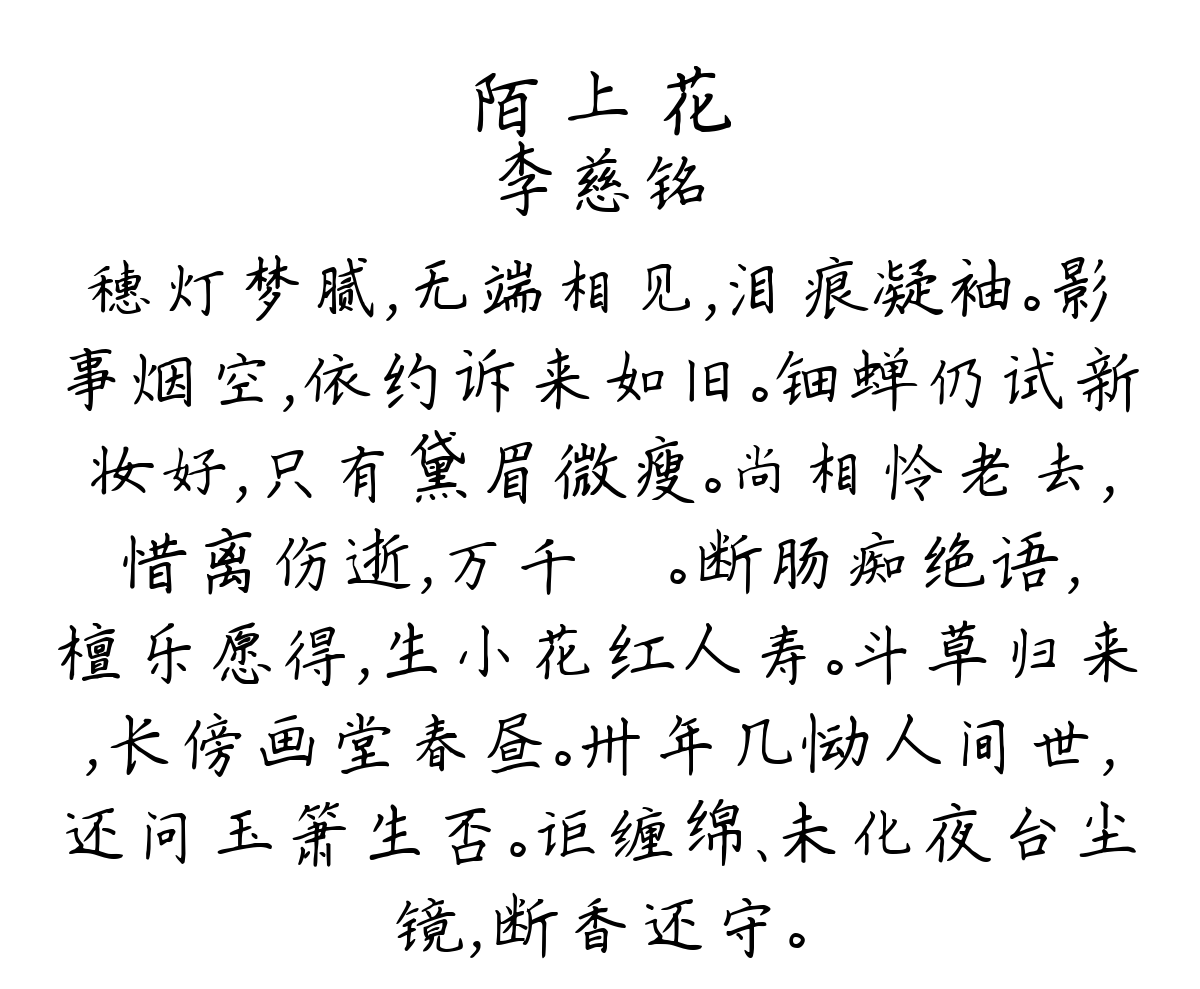 陌上花
李慈铭
穗灯梦腻,无端相见,泪痕凝袖。影
事烟空,依约诉来如旧。钿蝉仍试新
妆好,只有黛眉微瘦。尚相怜老去,
惜离伤逝,万千 。断肠痴绝语,
檀乐愿得,生小花红人寿。斗草归来
,长傍画堂春昼。卅年几恸人间世,
还问玉箫生否。讵缠绵、未化夜台尘
镜,断香还守。